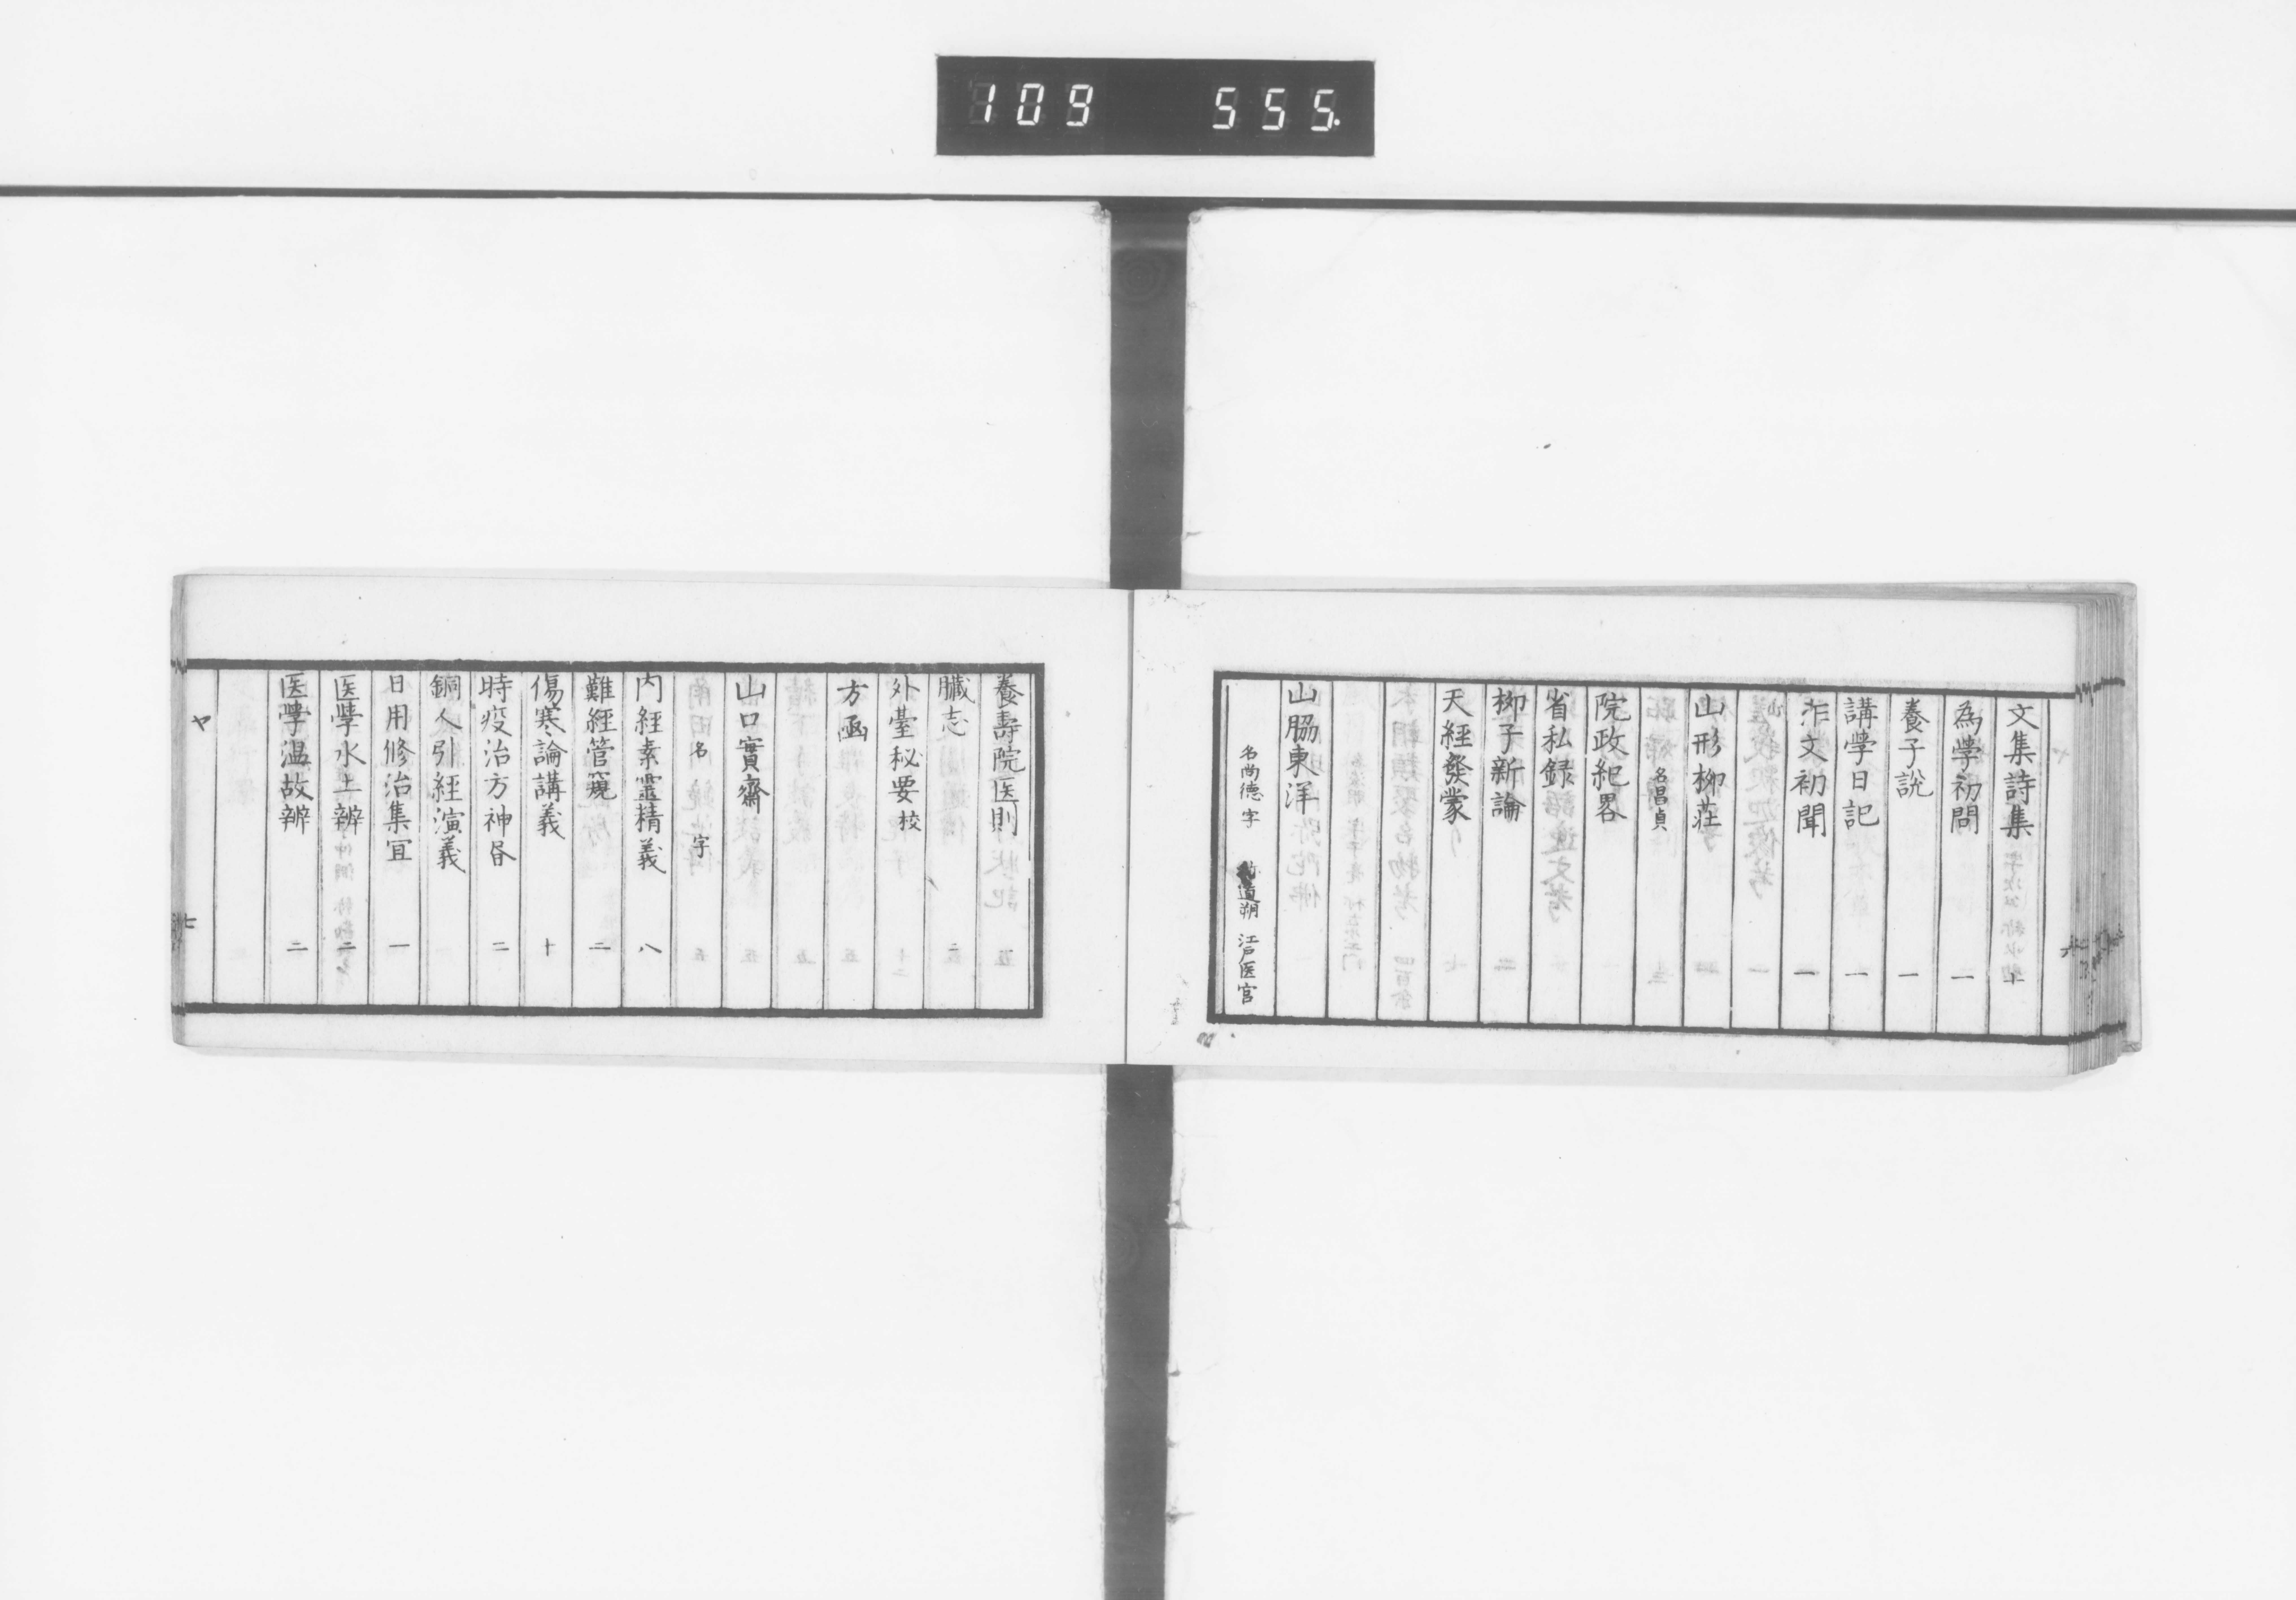 109 555.
文集詩集 十
為学初問 一
養子說 一
講学日記 一
作文初聞 一
山形柳荘
名昌貞
院政紀畧
省私録
柳子新論
天經發蒙
山脇東洋
名尚德 字 道朔 江戸医官
養壽院医則
臓志
外臺秘要 校
方函
山口實齋
名 字
内經素靈精義 八
難經管窺 二
傷寒論講義 十
時疫治方神昏 二
銅人引經演義
日用修治集宜 一
医學水土辨 二
医學温故辨 二
ヤ
七